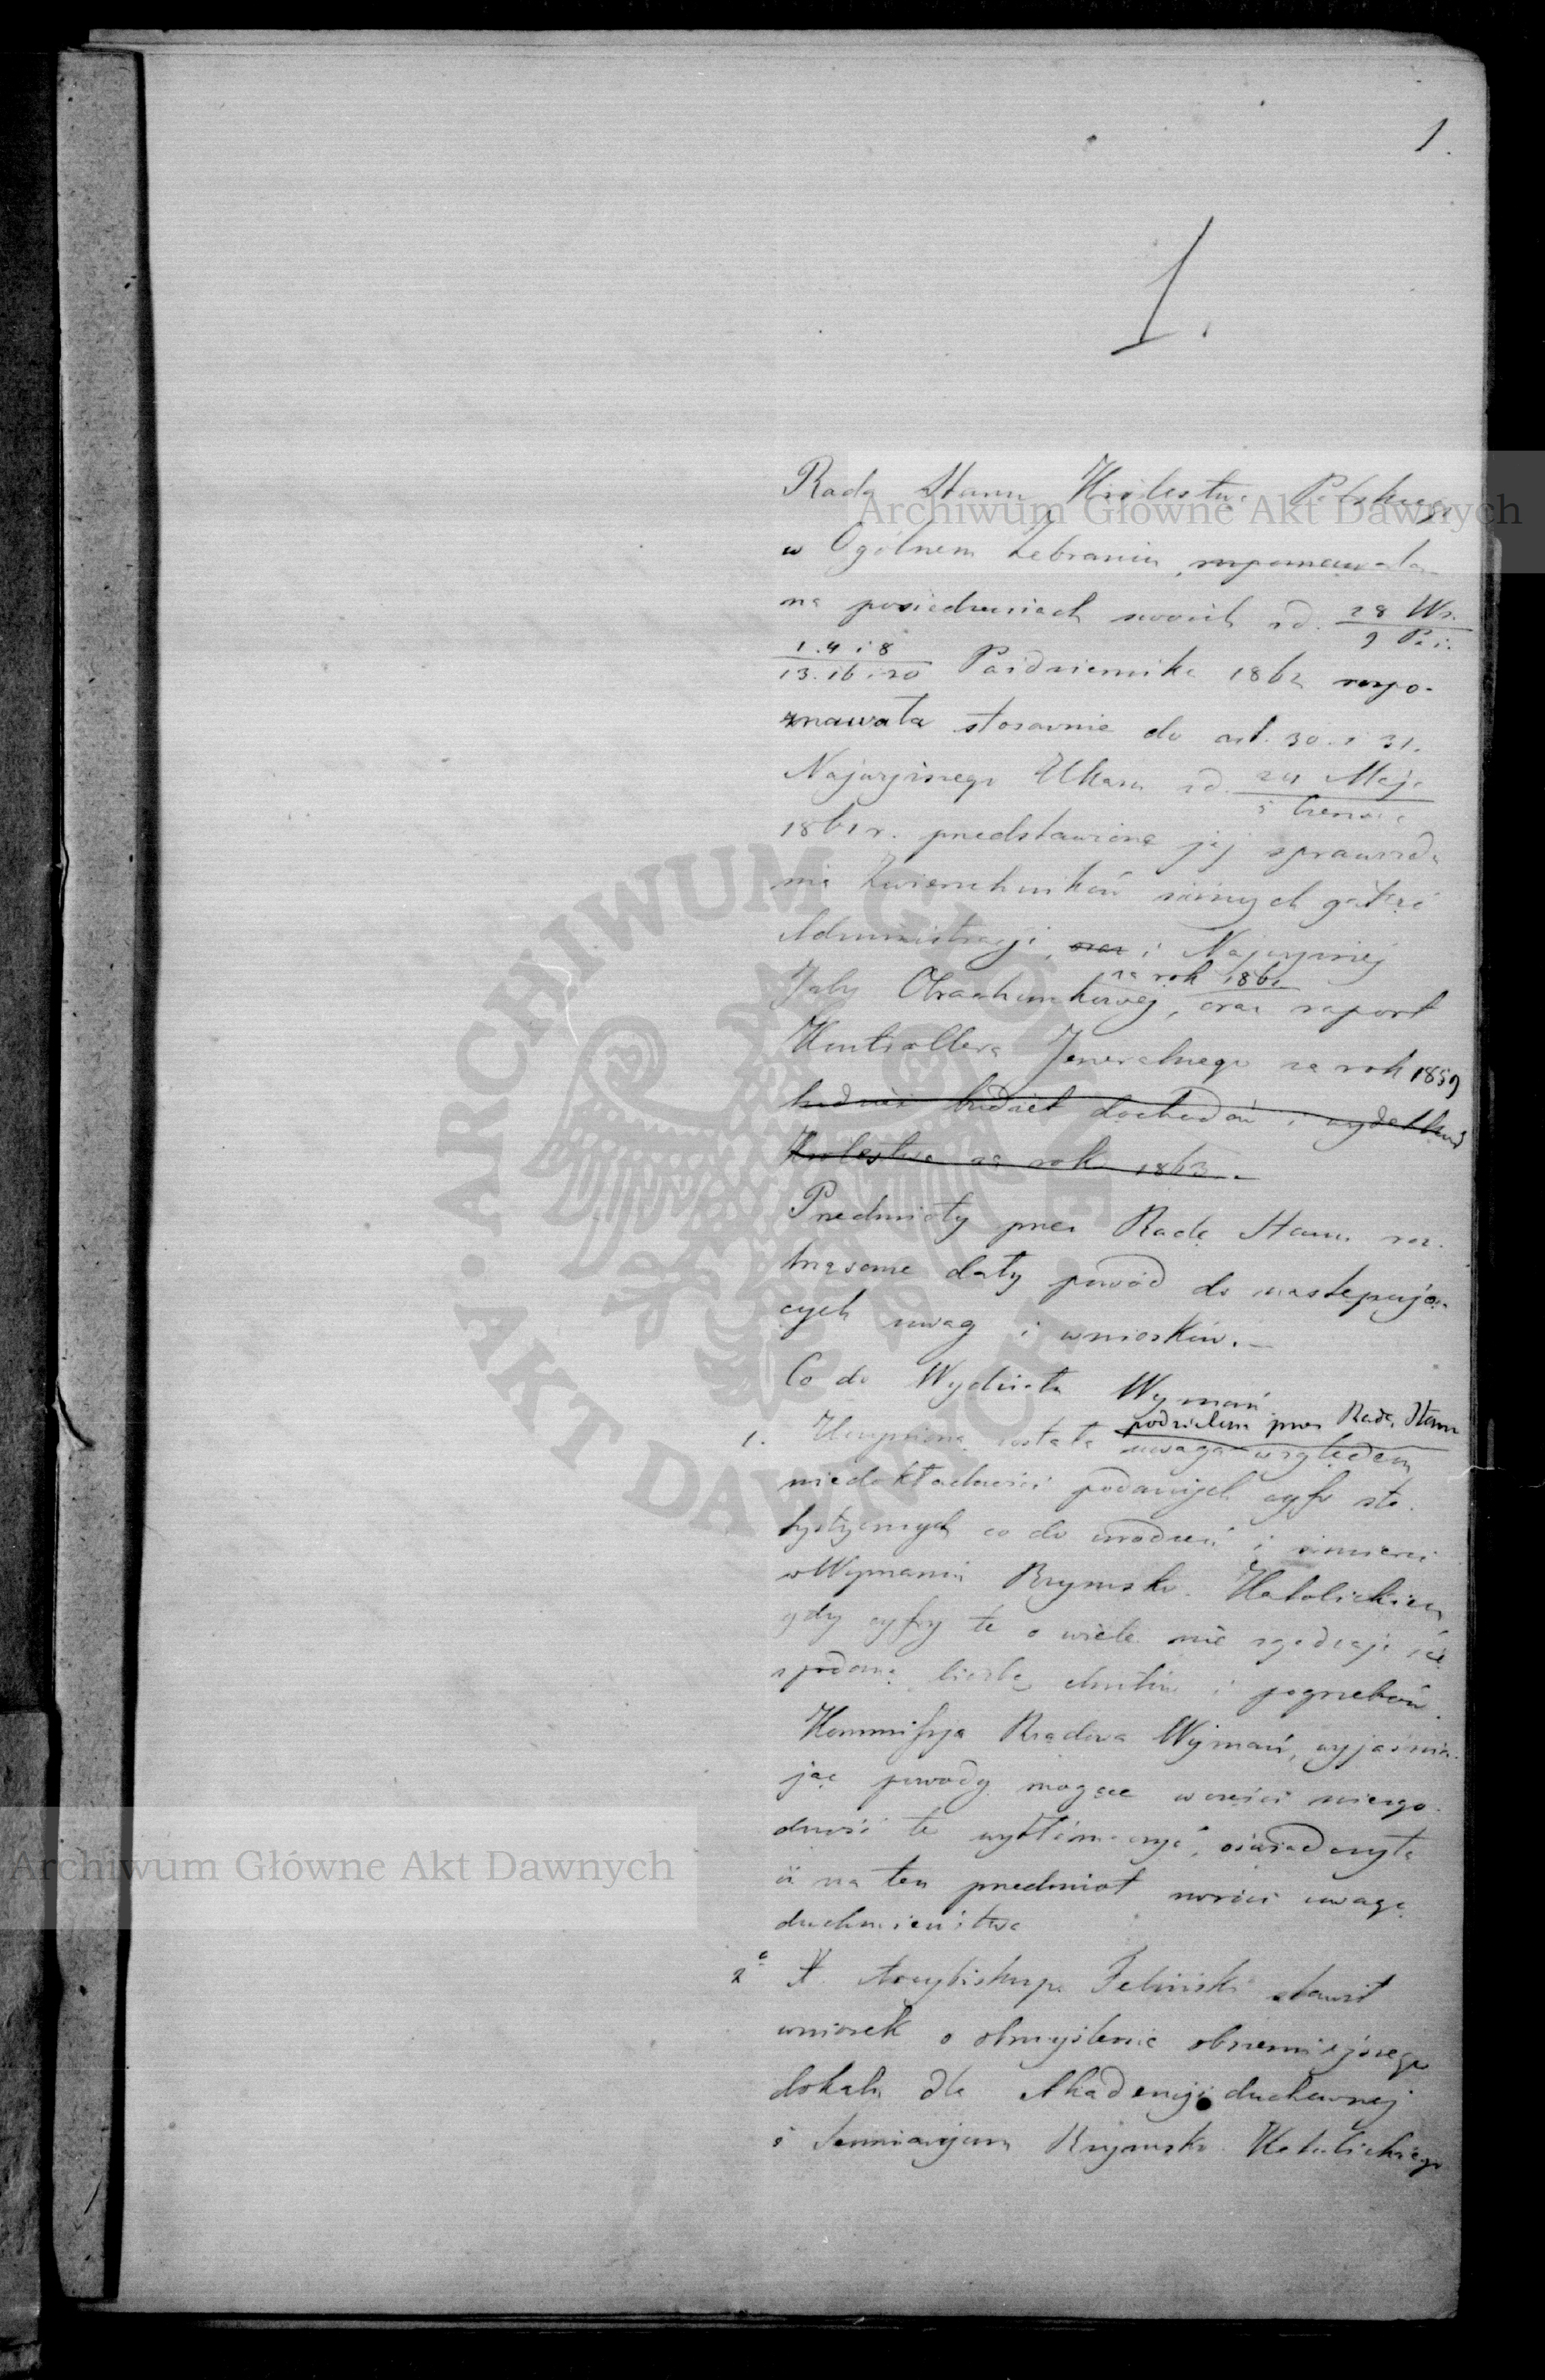 1.
1.
Rada Stanu Królestwa Polskiego
w Ogólnem Zebraniu, rozpoznawała
na posiedzeniach swoich od 28 Wr. / 9 Paź.
1. 4 i 8 / 13. 16 i 20 Października 1862 rozpo-
znawała stosownie do art. 30. i 31.
Najwyższego Ukazu od 24 Maja / 5 Czerwca
1861 r. przedstawione jej sprawozda
nia Zwierzchników różnych gałęzi
Administracji, oraz i Najwyższej
Izby Obrachunkowej, za rok 1861 oraz raport
Kontrollera Jeneralnego za rok 1859
budżet dochodów i wydatków
Królestwa na rok 1863.
Przedmioty przez Radę Stanu roz-
trząsane dały powód do następują-
cych uwag i wniosków.—
Co do Wydziału Wyznań
podzielona przez Radę Stanu
1. Uczynioną została uwaga względem
niedokładności podanych cyfr sta-
tystycznych co do urodzeń i śmierci
w Wyznaniu Rzymsko-Katolickiem
gdy cyfry te o wiele nie zgadzają się
z podaną liczbą chrztów i pogrzebów.
Kommissya Rządowa Wyznań, wyjaśnia-
jąc powody mogące w części niezgo-
dność tę wytłómaczyć, oświadczyła
iż na ten przedmiot zwróci uwagę
duchowieństwa
2 X. Arcybiskup Feliński stawił
wniosek o obmyślenie obszerniejszego
lokalu dla Akademji duchownej
i Seminaryum Rzymsko-Katolickiego
Archiwum Główne Akt Dawnych
Archiwum Główne Akt Dawnych
ARCHIWUM GŁÓWNE AKT DAWNYCH